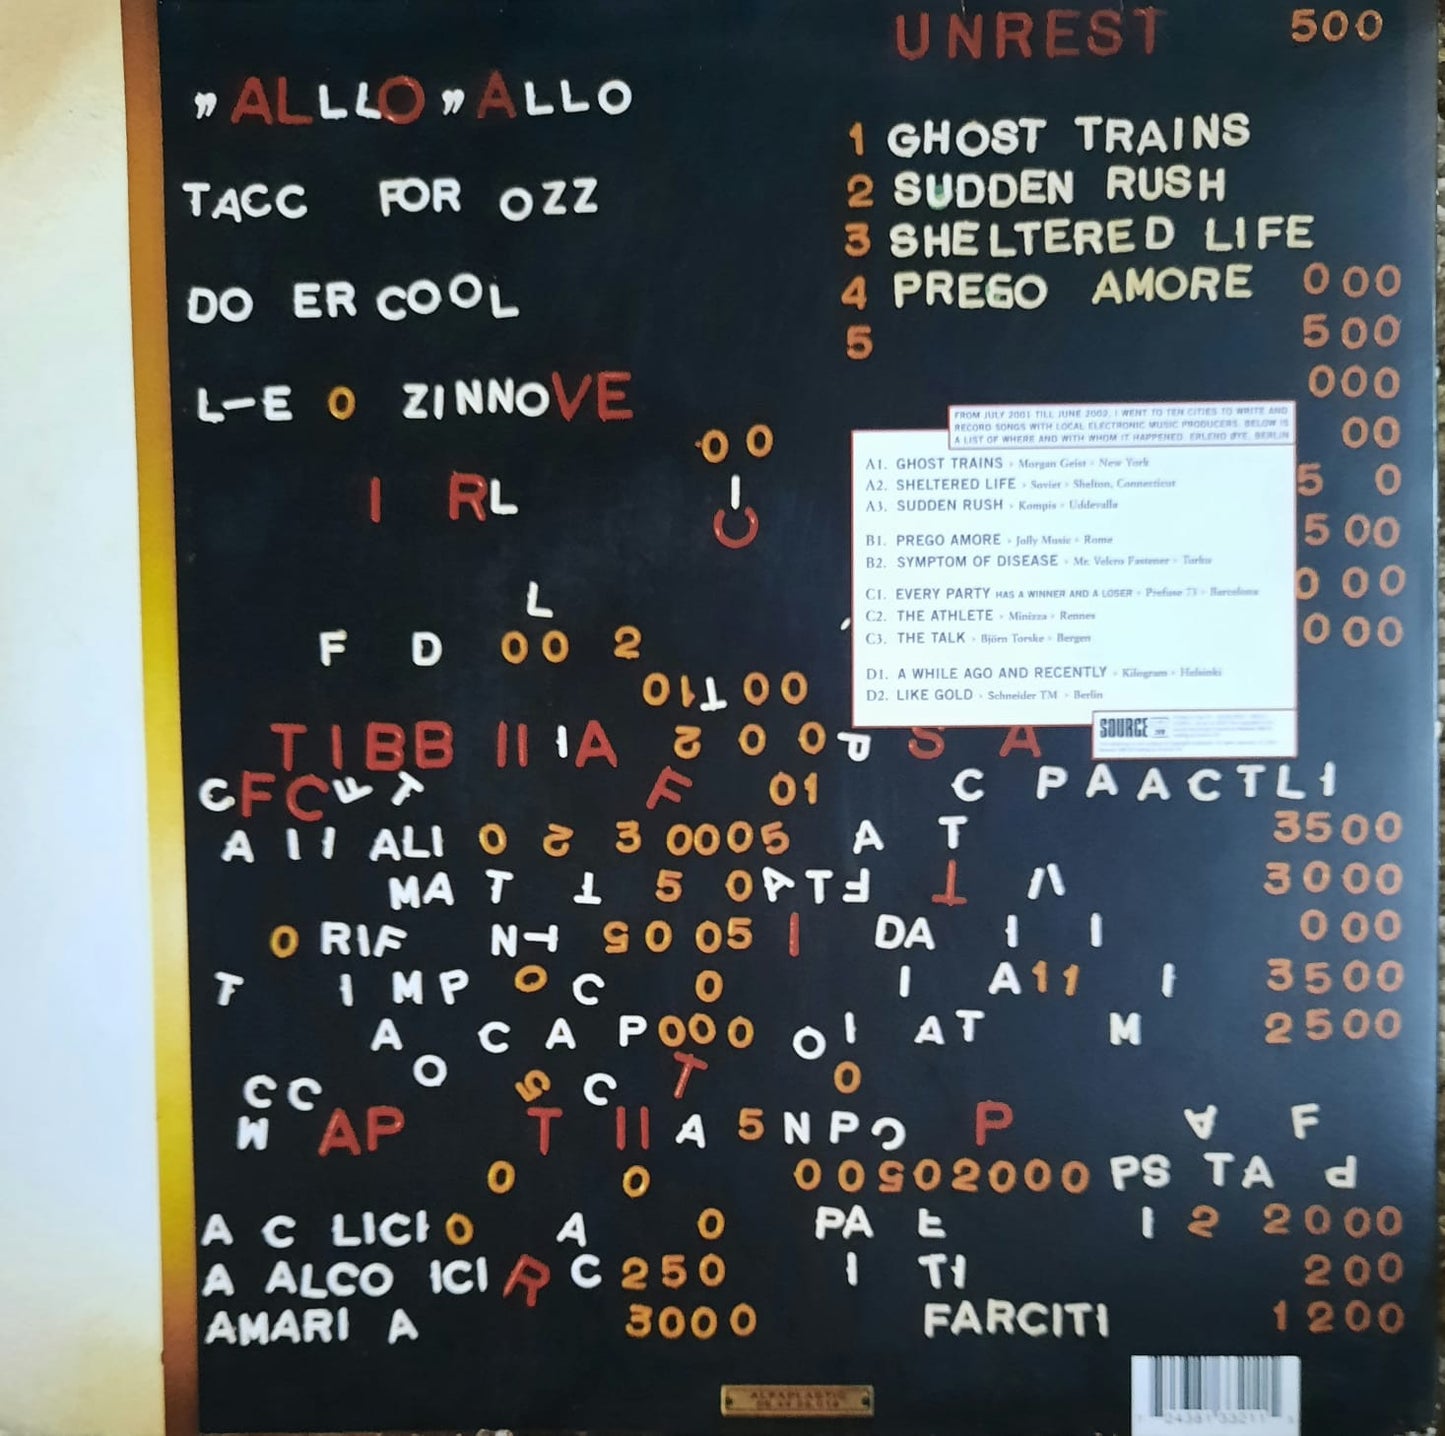 UNREST 500
„ALLLO „ALLO
1 GHOST TRAINS
TACC FOR OZZ
2 SUDDEN RUSH
3 SHELTERED LIFE
DO ER COOL
4 PREGO AMORE 000
5 500
L-E O ZINNOVE
000
FROM JULY 2001 TILL JUNE 2002, I WENT TO TEN CITIES TO WRITE AND
RECORD SONGS WITH LOCAL ELECTRONIC MUSIC PRODUCERS. BELOW IS
A LIST OF WHERE AND WITH WHOM IT HAPPENED. ERLEND ØYE, BERLIN
00
00
A1. GHOST TRAINS • Morgan Geist • New York
A2. SHELTERED LIFE • Soviet • Shelton, Connecticut
A3. SUDDEN RUSH • Kompis • Uddevalla
B1. PREGO AMORE • Jolly Music • Rome
B2. SYMPTOM OF DISEASE • Mr. Velcro Fastener • Turku
C1. EVERY PARTY HAS A WINNER AND A LOSER • Prefuse 73 • Barcelona
C2. THE ATHLETE • Minizza • Rennes
C3. THE TALK • Björn Torske • Bergen
D1. A WHILE AGO AND RECENTLY • Kilogram • Helsinki
D2. LIKE GOLD • Schneider TM • Berlin
SOURCE
5 0
I RL I
C
500
0 00
000
L
F D 00 2
011T 00
TIBB II IA 2 0 0 P S A
CFCFT F 01 C PAACTLI
A II ALI 0 2 3 0005 A T 3500
MA T T 5 0ATF T VI 3000
0 RIF NT 50 05 I DA I I 000
T IMP OC 0 I A11 I 3500
A CAP000 OI AT M 2500
O
CC 5 C T 0
M AP T II A 5NPC P A F
0 0 00502000 PS TA P
A C LICI0 A 0 PA E I 2 2000
A ALCO ICI R C 250 I TI 200
AMARI A 3000 FARCITI 1200
ALFAPLASTIC